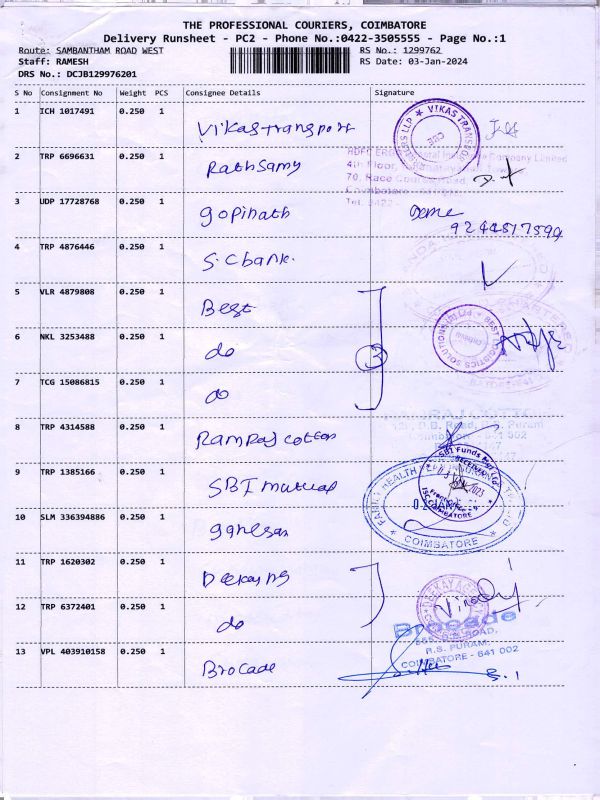 THE PROFESSIONAL COURIERS, COIMBATORE
Delivery Runsheet - PC2 - Phone No.:0422-3505555 - Page No.:1
Route: SAMBANTHAM ROAD WEST RS No.: 1299762
Staff: RAMESH RS Date: 03-Jan-2024
DRS No.: DCJB129976201
S No Consignment No Weight PCS Consignee Details Signature
1 ICH 1017491 0.250 1 Vikas transport
VIKAS TRANSPO
2 TRP 6696631 0.250 1 Rathsamy
HDFC ERGO Company Limited
4th Floor,
70, Race Course Road
Coimbatore
Tel. 0422
3 UDP 17728768 0.250 1 gopinath
9244817599
4 TRP 4876446 0.250 1 S.C bank.
5 VLR 4879808 0.250 1 Best
6 NKL 3253488 0.250 1 do 3
7 TCG 15086815 0.250 1 do
8 TRP 4314588 0.250 1 Ramraj cotton
D.B. Road, R.S. Puram
Coimbatore - 641 002
9 TRP 1385166 0.250 1 SBI mutual
SBI Funds
COIMBATORE
10 SLM 336394886 0.250 1 ganesan
FAMILY HEALTH
COIMBATORE
11 TRP 1620302 0.250 1 Deekay ns
12 TRP 6372401 0.250 1 do
Brocade
ROAD,
R.S. PURAM,
COIMBATORE - 641 002
13 VPL 403910158 0.250 1 Brocade